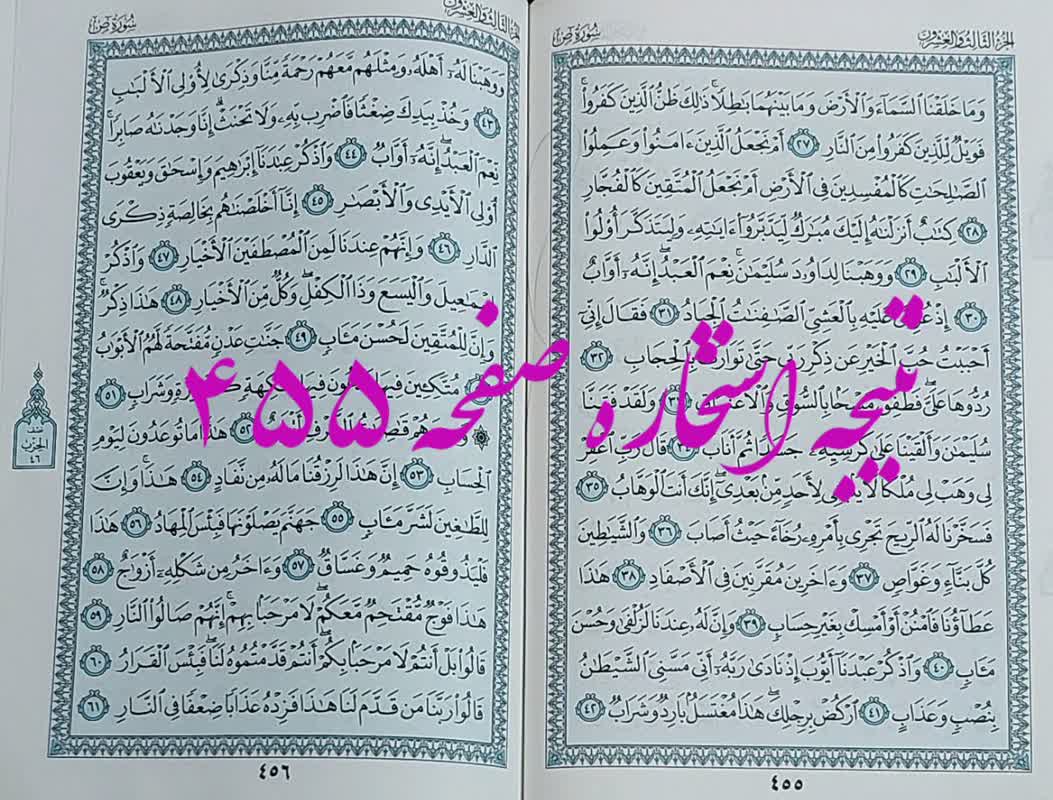 الجزء الثالث والعشرون
سورة ص
وَمَا خَلَقْنَا ٱلسَّمَآءَ وَٱلْأَرْضَ وَمَا بَيْنَهُمَا بَٰطِلًا ۚ ذَٰلِكَ ظَنُّ ٱلَّذِينَ كَفَرُوا۟ ۚ
فَوَيْلٌ لِّلَّذِينَ كَفَرُوا۟ مِنَ ٱلنَّارِ ٢٧ أَمْ نَجْعَلُ ٱلَّذِينَ ءَامَنُوا۟ وَعَمِلُوا۟
ٱلصَّٰلِحَٰتِ كَٱلْمُفْسِدِينَ فِى ٱلْأَرْضِ أَمْ نَجْعَلُ ٱلْمُتَّقِينَ كَٱلْفُجَّارِ
٢٨ كِتَٰبٌ أَنزَلْنَٰهُ إِلَيْكَ مُبَٰرَكٌ لِّيَدَّبَّرُوٓا۟ ءَايَٰتِهِۦ وَلِيَتَذَكَّرَ أُو۟لُوا۟
ٱلْأَلْبَٰبِ ٢٩ وَوَهَبْنَا لِدَاوُۥدَ سُلَيْمَٰنَ ۚ نِعْمَ ٱلْعَبْدُ ۖ إِنَّهُۥٓ أَوَّابٌ
٣٠ إِذْ عُرِضَ عَلَيْهِ بِٱلْعَشِىِّ ٱلصَّٰفِنَٰتُ ٱلْجِيَادُ ٣١ فَقَالَ إِنِّىٓ
أَحْبَبْتُ حُبَّ ٱلْخَيْرِ عَن ذِكْرِ رَبِّى حَتَّىٰ تَوَارَتْ بِٱلْحِجَابِ ٣٢
رُدُّوهَا عَلَىَّ ۖ فَطَفِقَ مَسْحًۢا بِٱلسُّوقِ وَٱلْأَعْنَاقِ ٣٣ وَلَقَدْ فَتَنَّا
سُلَيْمَٰنَ وَأَلْقَيْنَا عَلَىٰ كُرْسِيِّهِۦ جَسَدًا ثُمَّ أَنَابَ ٣٤ قَالَ رَبِّ ٱغْفِرْ
لِى وَهَبْ لِى مُلْكًا لَّا يَنۢبَغِى لِأَحَدٍ مِّنۢ بَعْدِىٓ ۖ إِنَّكَ أَنتَ ٱلْوَهَّابُ ٣٥
فَسَخَّرْنَا لَهُ ٱلرِّيحَ تَجْرِى بِأَمْرِهِۦ رُخَآءً حَيْثُ أَصَابَ ٣٦ وَٱلشَّيَٰطِينَ
كُلَّ بَنَّآءٍ وَغَوَّاصٍ ٣٧ وَءَاخَرِينَ مُقَرَّنِينَ فِى ٱلْأَصْفَادِ ٣٨ هَٰذَا
عَطَآؤُنَا فَٱمْنُنْ أَوْ أَمْسِكْ بِغَيْرِ حِسَابٍ ٣٩ وَإِنَّ لَهُۥ عِندَنَا لَزُلْفَىٰ وَحُسْنَ
مَـَٔابٍ ٤٠ وَٱذْكُرْ عَبْدَنَآ أَيُّوبَ إِذْ نَادَىٰ رَبَّهُۥٓ أَنِّى مَسَّنِىَ ٱلشَّيْطَٰنُ
بِنُصْبٍ وَعَذَابٍ ٤١ ٱرْكُضْ بِرِجْلِكَ ۖ هَٰذَا مُغْتَسَلٌۢ بَارِدٌ وَشَرَابٌ ٤٢
٤٥٥
الجزء الثالث والعشرون
سورة ص
وَوَهَبْنَا لَهُۥٓ أَهْلَهُۥ وَمِثْلَهُم مَّعَهُمْ رَحْمَةً مِّنَّا وَذِكْرَىٰ لِأُو۟لِى ٱلْأَلْبَٰبِ
٤٣ وَخُذْ بِيَدِكَ ضِغْثًا فَٱضْرِب بِّهِۦ وَلَا تَحْنَثْ ۗ إِنَّا وَجَدْنَٰهُ صَابِرًا ۚ
نِّعْمَ ٱلْعَبْدُ ۖ إِنَّهُۥٓ أَوَّابٌ ٤٤ وَٱذْكُرْ عِبَٰدَنَآ إِبْرَٰهِيمَ وَإِسْحَٰقَ وَيَعْقُوبَ
أُو۟لِى ٱلْأَيْدِى وَٱلْأَبْصَٰرِ ٤٥ إِنَّآ أَخْلَصْنَٰهُم بِخَالِصَةٍ ذِكْرَى
ٱلدَّارِ ٤٦ وَإِنَّهُمْ عِندَنَا لَمِنَ ٱلْمُصْطَفَيْنَ ٱلْأَخْيَارِ ٤٧ وَٱذْكُرْ
إِسْمَٰعِيلَ وَٱلْيَسَعَ وَذَا ٱلْكِفْلِ ۖ وَكُلٌّ مِّنَ ٱلْأَخْيَارِ ٤٨ هَٰذَا ذِكْرٌ ۚ
وَإِنَّ لِلْمُتَّقِينَ لَحُسْنَ مَـَٔابٍ ٤٩ جَنَّٰتِ عَدْنٍ مُّفَتَّحَةً لَّهُمُ ٱلْأَبْوَٰبُ
٥٠ مُتَّكِـِٔينَ فِيهَا يَدْعُونَ فِيهَا بِفَٰكِهَةٍ كَثِيرَةٍ وَشَرَابٍ ٥١
۞ وَعِندَهُمْ قَٰصِرَٰتُ ٱلطَّرْفِ أَتْرَابٌ ٥٢ هَٰذَا مَا تُوعَدُونَ لِيَوْمِ
ٱلْحِسَابِ ٥٣ إِنَّ هَٰذَا لَرِزْقُنَا مَا لَهُۥ مِن نَّفَادٍ ٥٤ هَٰذَا ۚ وَإِنَّ
لِلطَّٰغِينَ لَشَرَّ مَـَٔابٍ ٥٥ جَهَنَّمَ يَصْلَوْنَهَا فَبِئْسَ ٱلْمِهَادُ ٥٦ هَٰذَا
فَلْيَذُوقُوهُ حَمِيمٌ وَغَسَّاقٌ ٥٧ وَءَاخَرُ مِن شَكْلِهِۦٓ أَزْوَٰجٌ ٥٨
هَٰذَا فَوْجٌ مُّقْتَحِمٌ مَّعَكُمْ ۖ لَا مَرْحَبًۢا بِهِمْ ۚ إِنَّهُمْ صَالُوا۟ ٱلنَّارِ ٥٩
قَالُوا۟ بَلْ أَنتُمْ لَا مَرْحَبًۢا بِكُمْ ۖ أَنتُمْ قَدَّمْتُمُوهُ لَنَا ۖ فَبِئْسَ ٱلْقَرَارُ ٦٠
قَالُوا۟ رَبَّنَا مَن قَدَّمَ لَنَا هَٰذَا فَزِدْهُ عَذَابًا ضِعْفًا فِى ٱلنَّارِ ٦١
٤٥٦
نصف
الحزب
٤٦
نتیجه استخاره صفحه ۴۵۵